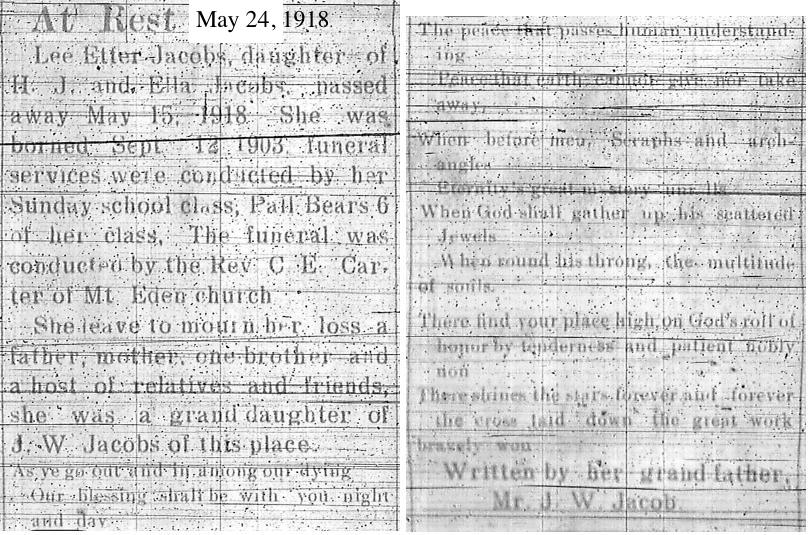 At Rest May 24, 1918
Lee Etter Jacobs, daughter of
H. J. and Ella Jacobs, passed
away May 15, 1918 She was
borned Sept 12 1903 funeral
services were conducted by her
Sunday school class, Pall Bears 6
of her class, The funeral was
conducted by the Rev C E. Car-
ter of Mt Eden church
She leave to mourn her loss a
father, mother, one brother and
a host of relatives and friends,
she was a grand daughter of
J. W Jacobs of this place.
As ye go out and in among our dying
Our blessing shall be with you night
and day
The peace that passes human understand-
ing
Peace that earth cannot give nor take
away,
When before men, Seraphs and arch-
angles
Eternity's great
When God shall gather up his scattered
Jewels
When round his throng, the multitude
of souls.
There find your place high, on God's roll of
honor by tenderness and patient nobly
There shines the stars forever and forever
the cross laid down the great work
bravely won
Written by her grand father,
Mr. J. W Jacob